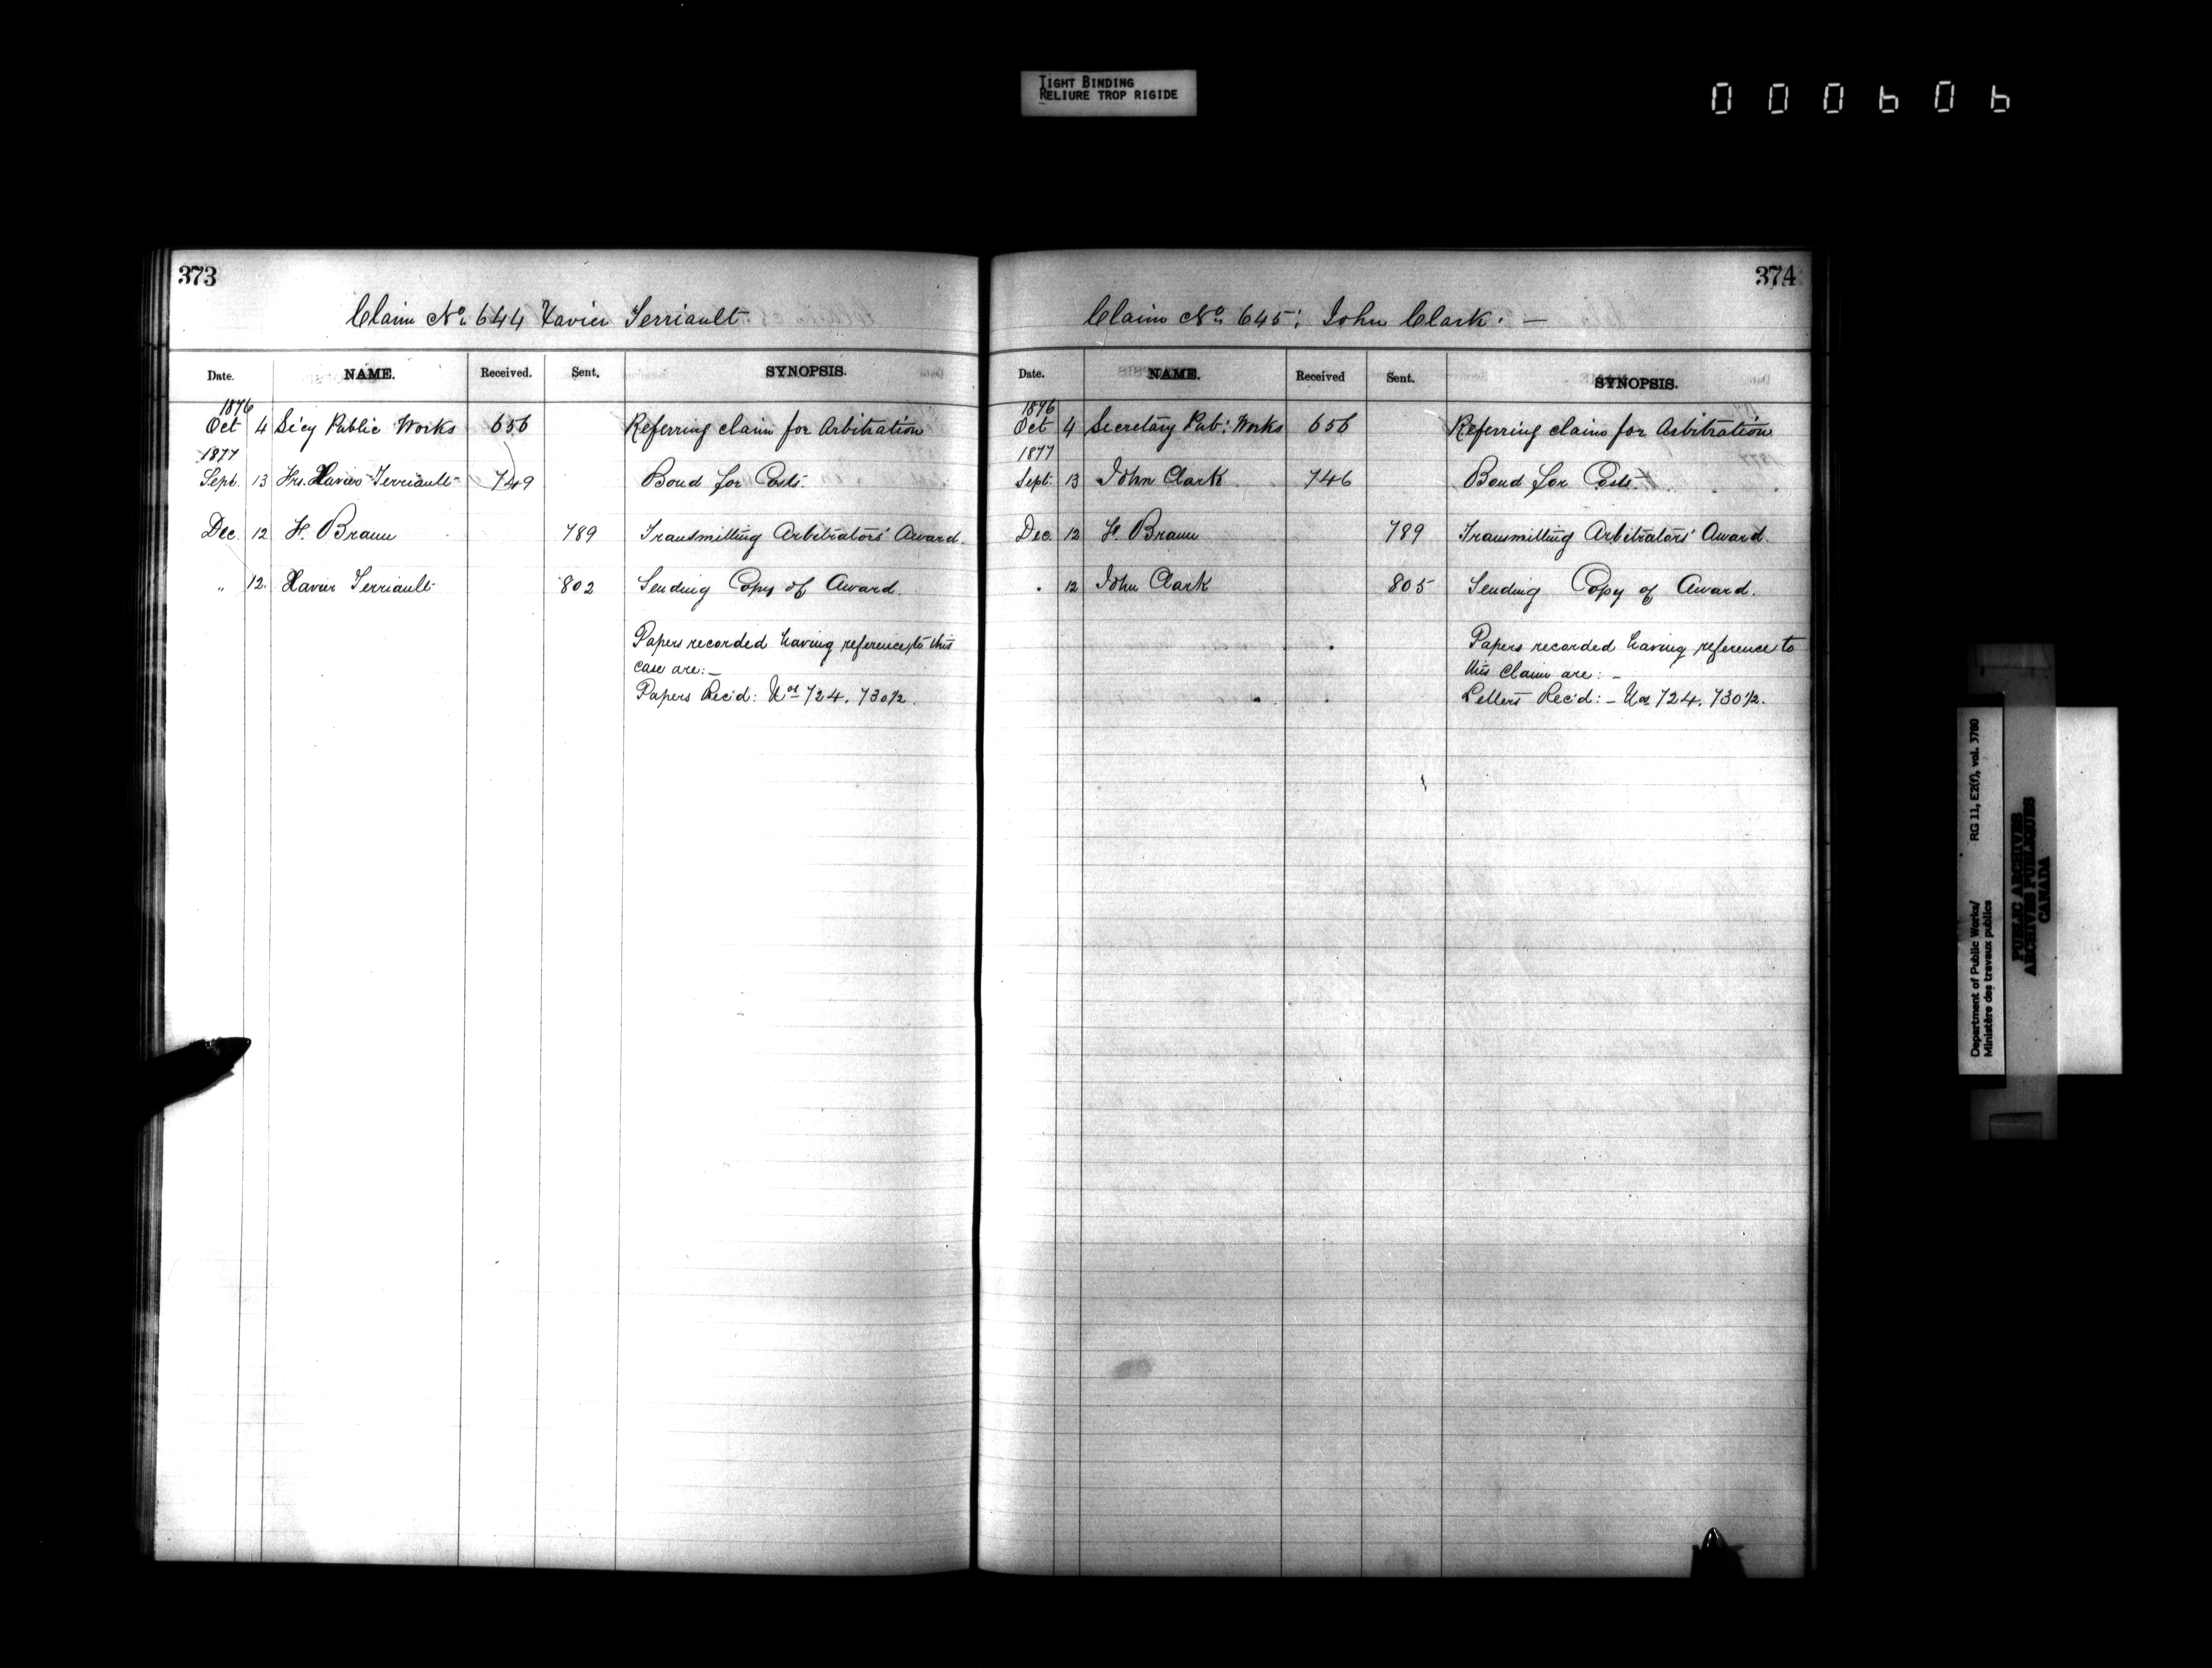 TIGHT BINDING
RELIURE TROP RIGIDE
000606
373
Claim No. 644 Xavier Terriault
Date. NAME. Received. Sent. SYNOPSIS.
1876
Oct 4 Sec'y Public Works 656 Referring claim for Arbitration
1877
Sept. 13 Frs. Xavier Terriault 749 Bond for Costs.
Dec. 12 F. Braun 789 Transmitting Arbitrators' Award.
" 12. Xavier Terriault 802 Sending Copy of Award.
Papers recorded having reference to this
case are: –
Papers Rec'd: Nos 724. 730½.
374
Claim No. 645: John Clark. —
Date. NAME. Received Sent. SYNOPSIS.
1876
Oct 4 Secretary Pub: Works 656 Referring claim for Arbitration
1877
Sept. 13 John Clark 746 Bond for Costs.
Dec. 12 F. Braun 789 Transmitting Arbitrators' Award.
" 12 John Clark 805 Sending Copy of Award.
Papers recorded having reference to
this Claim are: –
Letters Rec'd: – Nos 724. 730½.
Department of Public Works/ RG 11, E2(f), vol. 3780
Ministère des travaux publics
PUBLIC ARCHIVES
ARCHIVES PUBLIQUES
CANADA